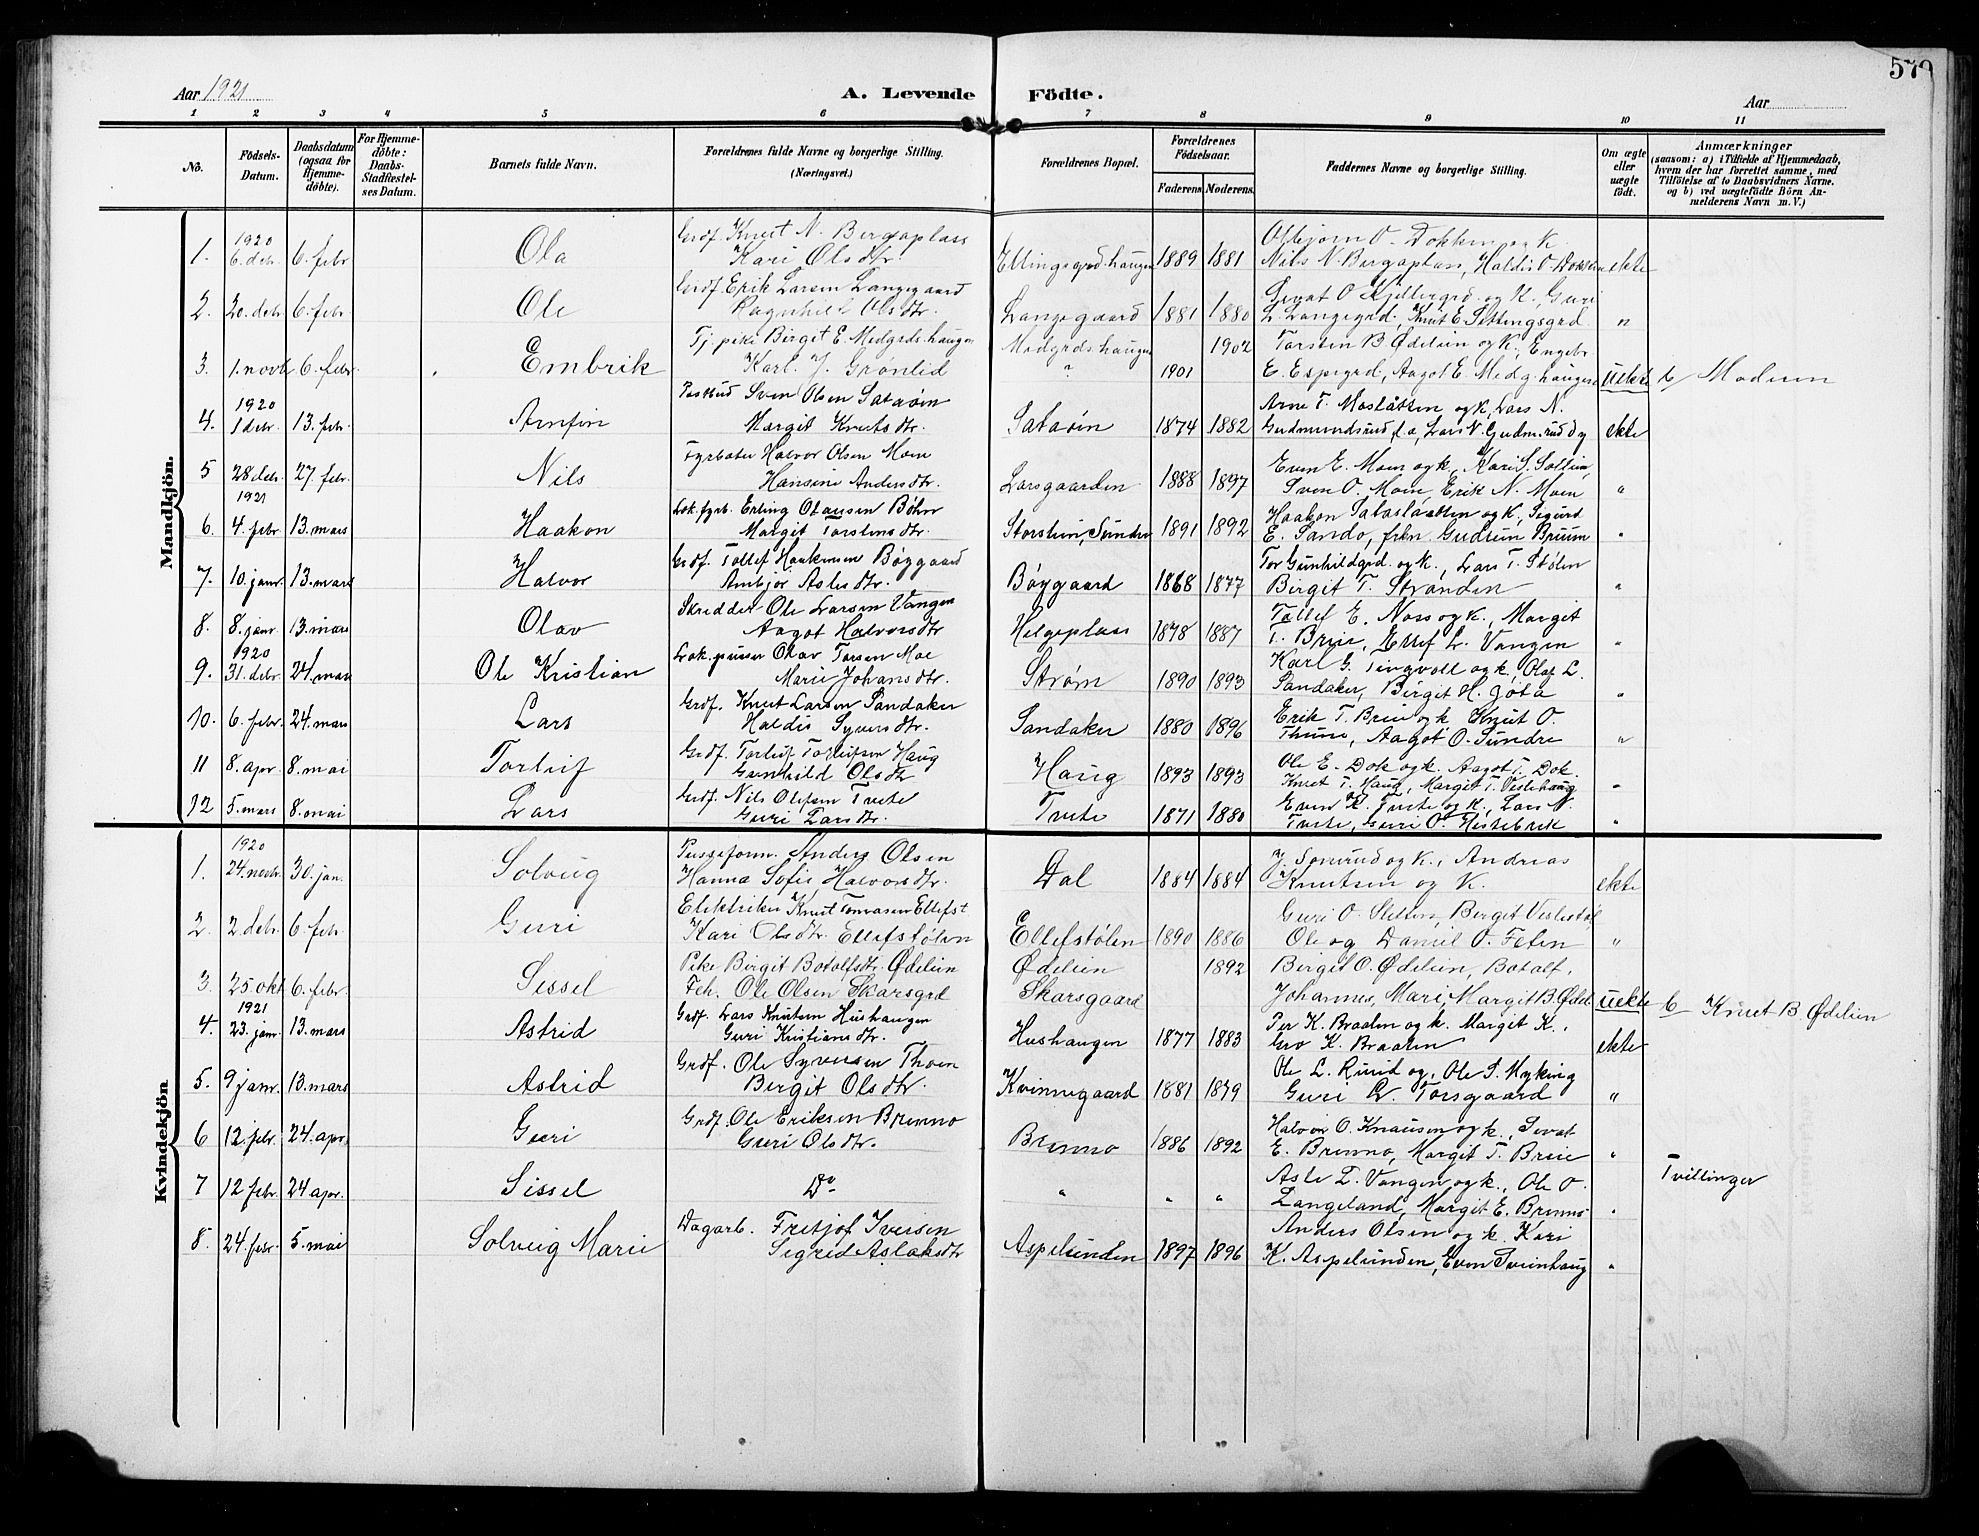 570
Aar 1921
A. Levende Födte.
Aar
1 2 3 4 5 6 7 8 9 10 11
No.
Födsels-Datum.
Daabsdatum (ogsaa for Hjemmedöbte).
For Hjemmedöbte: Daabs-Stadfæstelses Datum.
Barnets fulde Navn.
Forældrenes fulde Navne og borgerlige Stilling. (Næringsvei.)
Forældrenes Bopæl.
Forældrenes Födselsaar.
Faderens. Moderens.
Faddernes Navne og borgerlige Stilling.
Om ægte eller uægte födt.
Anmærkninger
(saasom: a) i Tilfælde af Hjemmedaab, hvem der har forrettet samme, med Tilföielse af to Daabsvidners Navne. og b) ved uægtefödte Börn Anmelderens Navn m. V.)
Mandkjön.
1. 1920 6. debr. 6. febr. Ola Grdf. Knut N. Bergaplass
Kari Olsdtr. Ellingsgrd.haugen 1889 1881 Olbjørn O. Dokken og K.
Nils N. Bergaplass, Haldis O. Dokken ekte
2. 20. debr. 6. febr. Ole Grdf. Erik Larsen Langegaard
Ragnhild Olsdtr. Langegaard 1881 1880 Sevat O. Kjillergrd. og K., Guri
L. Langegrd., Knut E. Settingsgrd. "
3. 1. novb. 6. febr. Embrik Tj. pike Birgit E. Medgrdshaugen
Karl J. Grønlid Medgrdshaugen 1901 1902 Torsten B. Ødelien og K., Engebr.
E. Espegrd, Aagot E. Medg.haugen uekte b Moderen
4. 1920 1 debr. 13. febr. Arnfin Postbud Sven Olsen Sataøen
Margit Knutsdtr. Sataøin 1874 1882 Arne T. Moslåtten og K, Lars N.
Gudmundsrud ekte
5 28 debr. 27. febr. Nils Fyrbøter Halvor Olsen Moen
Hansine Andersdtr. Larsgaarden 1888 1897 Even E. Moen og k, Kari S.
Sven O. Moen, Erik N. Moen "
6. 1921 4. febr 13. mars Haakon Lok.fyrb. Erling Olausen Bøhn
Margit Torstensdtr. Storstein, Sundre 1891 1892 Haakon Sataslaatten og K, Sigurd
E. Sando, frkn Gudrun Bruun "
7. 10. janr. 13. mars Halvor Grdf. Tollef Haakonsen Bøygaard
Ambjør Aslesdtr. Bøygaard 1868 1877 Tor Gunhildgrd og K., Lars T. Stølen
Birgit T. Stranden "
8. 8. janr. 13. mars Olav Skredder Ole Larsen Vangen
Aagot Halvorsdtr Helgeplass 1878 1887 Tollef E. Noss og K., Margit
T. Breie, Ellef L. Vangen "
9. 1920 31. debr. 24. mars Ole Kristian Lok.pusser Olav Torsen Moe
Marie Johansdtr. Strøm 1890 1893 Karl G. Tingvoll og k, Olaf L.
Sandaker, Birgit H. Jota "
10. 6. febr. 24. mars Lars Grdf. Knut Larsen Sandaker
Haldis Syversdtr. Sandaker 1880 1896 Erik T. Breie og k Knut O.
Thune, Aagot O. Sundre "
11 8. apr. 8. mai Torleif Grdf. Torleif Torleifsen Haug
Gunhild Olsdtr Haug 1893 1893 Ole E. Dok og k. Aagot T. Dok.
Knut T. Haug, Margit T. Veslehaug "
12 5. mars 8. mai Lars Grdf. Nils Olefsen Tveto
Guri Larsdtr. Tveto 1871 1880 Even K. Tveto og K, Lars N.
Tveto, Guri O. Hestebrek "
Kvindekjön.
1. 1920 24. novbr. 30. jan. Solveig Pusseform. Anders Olsen
Hanna Sofie Halvorsdtr. Dal 1884 1884 J. Sønrud og K., Andreas
Knutsen og K. ekte
2. 2 debr. 6. febr. Guri Elektriker Knut Tomasen Ellefst
Kari Olsdtr. Ellefstølen Ellefstølen 1890 1886 Guri O. Sletten, Birgit Veslestøl,
Ole og Daniel O. Feten "
3. 25 okt 6. febr. Sissel Pike Birgit Botolfsdtr. Ødelien
Feh. Ole Olsen Skarsgrd Ødelien
Skarsgaard 1892 Birgit O. Ødelien, Botolf,
Johannes, Mari, Margit B. Ødel. uekte b Knut B Ødelien
4. 1921 23. janr 13. mars Astrid Grdf. Lars Knutsen Hushaugen
Guri Kristiansdtr. Hushaugen 1877 1883 Per K. Braaten og k. Margit K.,
Gro K. Braaten ekte
5. 9 janr. 13. mars Astrid Grdf. Ole Syversen Thoen
Bergit Olsdtr. Kvinnegaard 1881 1879 Ole L. Ruud og, Ole S. Myking
Guri L. Torsgaard "
6 12. febr. 24. apr. Guri Grdf. Ole Eriksen Brenno
Guri Olsdtr. Brenno 1886 1892 Halvor O. Knausen og k, Sevat
E. Brenno, Margit T. Breie "
7 12 febr. 24 apr. Sissel Do " " " Asle L. Vangen og k., Ole O.
Langeland, Margit E. Brenno " Tvillinger
8. 24. febr. 5. mai Solveig Marie Dagarb. Fritjof Iversen
Sigrid Aslaksdtr Aspelunden 1897 1896 Anders Olsen og k. Kari
K. Aspelunden, Even Sveinhaug "